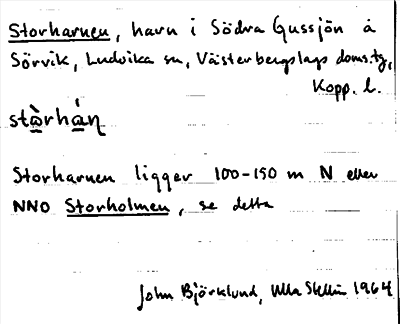 Storharnen, harn i Södra Gussjön å
Sörvik, Ludvika sn, Västerbergslags doms.tg,
Kopp. l.
stàrhán
Storharnen ligger 100-150 m N eller
NNO Storholmen, se detta
John Björklund, Ulla Stellin 1964